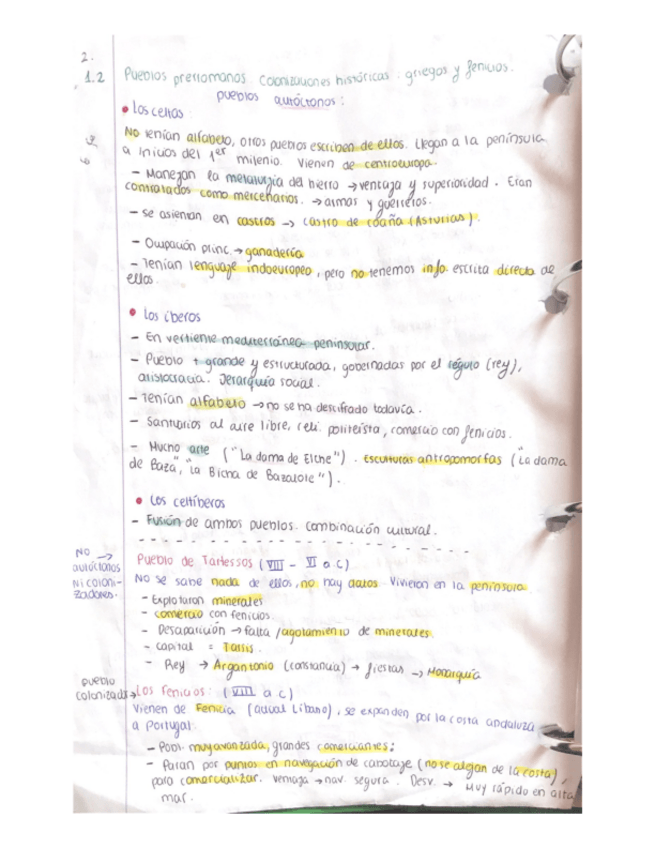 2.
1.2 Pueblos prerromanos. Colonizaciones históricas: griegos y fenicios.
pueblos autóctonos:
• Los celtas
No tenían alfabeto, otros pueblos escriben de ellos. Llegan a la península
a inicios del 1er milenio. Vienen de centroeuropa.
- Manejan la metalurgia del hierro → ventaja y superioridad. Eran
contratados como mercenarios. → armas y guerreros.
- Se asientan en castros → castro de coaña (Asturias).
- Ocupación princ. → ganadería
- Tenían lenguaje indoeuropeo, pero no tenemos info. escrita directa de
ellos.
• Los íberos
- En vertiente mediterránea peninsular.
- Pueblo + grande y estructurada, gobernadas por el régulo (rey),
aristocracia. Jerarquía social.
- Tenían alfabeto → no se ha descifrado todavía.
- Santuarios al aire libre, reli. politeísta, comercio con fenicios.
- Mucho arte ("La dama de Elche"). Esculturas antropomorfas ("La dama
de Baza", "La Bicha de Bazalote").
• Los celtíberos
- Fusión de ambos pueblos. Combinación cultural.
NO →
autóctonos
Ni coloni-
zadores.
Pueblo de Tartessos (VIII - VI a C)
No se sabe nada de ellos, no hay datos. Vivieron en la península
- Explotaron minerales
- comercio con fenicios.
- Desaparición → falta / agotamiento de minerales.
- Capital = Tarsis.
- Rey → Argantonio (constancia) → fiestas → Monarquía
pueblo
colonizado →
Los Fenicios: (VIII a C)
Vienen de Fenicia (actual Líbano), se expanden por la costa andaluza
a Portugal.
- Pobl. muy avanzada, grandes comerciantes;
- Paran por puntos en navegación de cabotaje (no se alejan de la costa),
para comercializar. Ventaja → nav. segura. Desv. → Muy rápido en alta
mar.